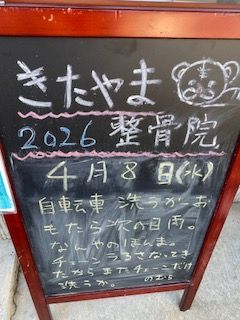 きたやま
2026 整骨院
4月8日(水)
自転車洗うがお
もたら次の日雨。
なんやのほんま。
チェーンうるさなってき
たからまたチェーンだけ
洗うか。 のむら